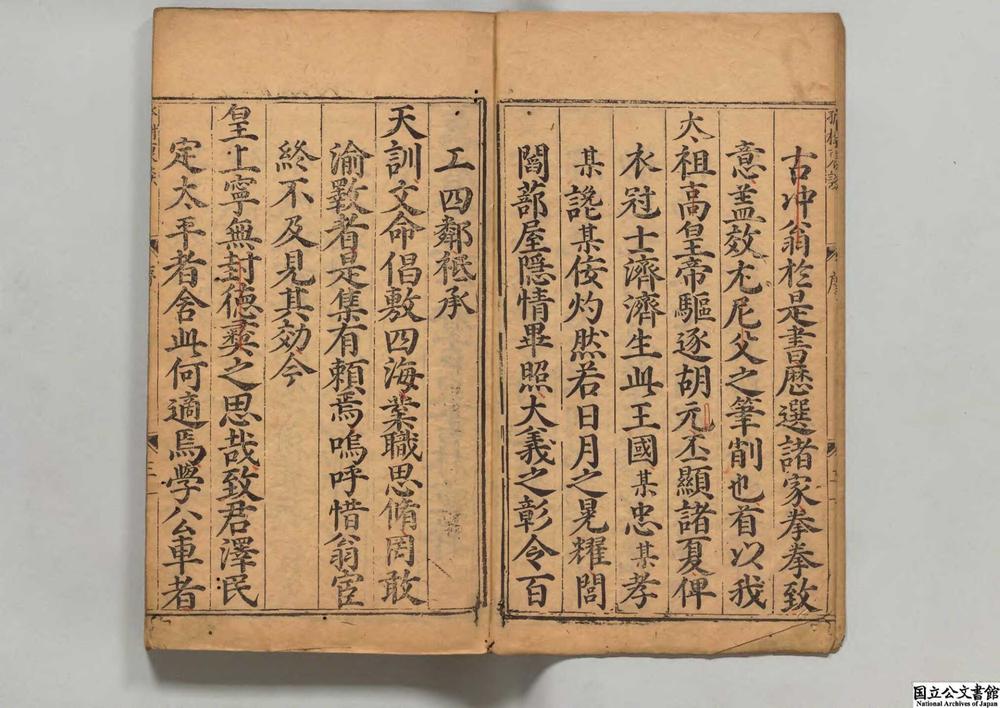 古冲翁於是書曆選諸家拳拳致
意蓋效尤尼父之筆削也首以我
太祖高皇帝驅逐胡元丕顯諸夏俾
衣冠士濟濟生此王國某忠某孝
某讒某佞灼然若日月之晃耀閭
閻蔀屋隱情畢照大義之彰令百
工四鄰祗承
天訓文命倡敷四海業職思脩罔敢
渝斁者是集有賴焉嗚呼惜翁宦
終不及見其効今
皇上寧無封德彞之思哉致君澤民
定太平者舍此何適焉學公車者
国立公文書館
National Archives of Japan